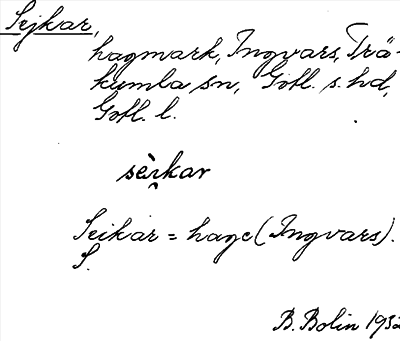 Sejkar,
hagmark, Ingvars, Trä-
kumla sn, Gotl. s. hd,
Gotl. l.
sèi̯kar
Seikar = hage (Ingvars).
S.
B. Bolin 1932